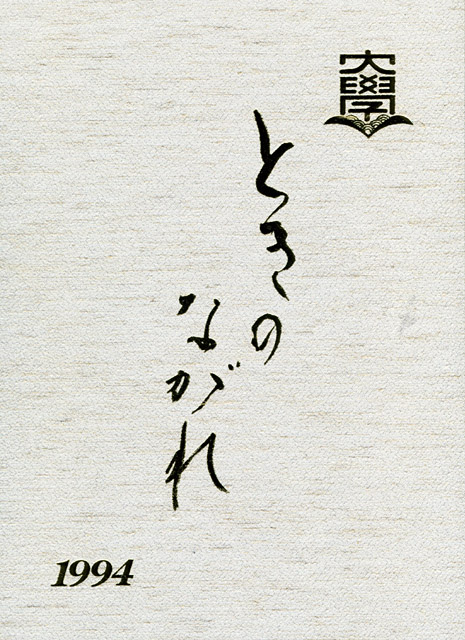 大學
ときの
ながれ
1994